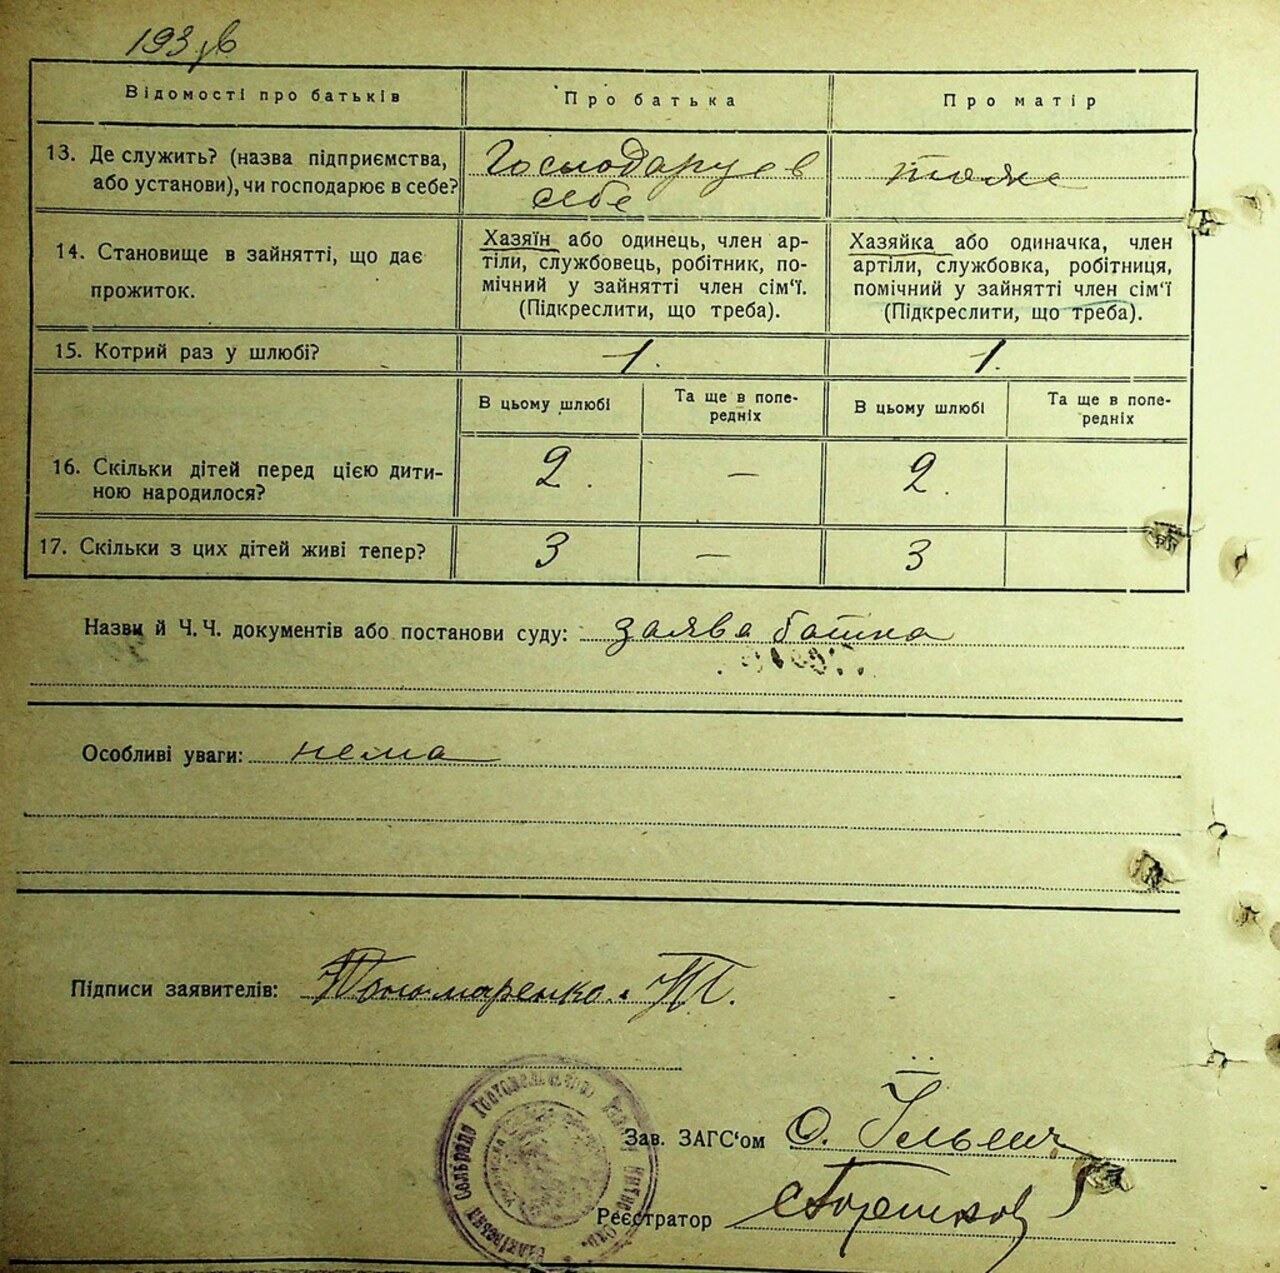 193 зв
Відомості про батьків
Про батька
Про матір
13. Де служить? (назва підприємства,
або установи), чи господарює в себе?
Господарує в
себе
тоже
14. Становище в зайнятті, що дає
прожиток.
Хазяїн або одинець, член ар-
тіли, службовець, робітник, по-
мічний у зайнятті член сім‘ї.
(Підкреслити, що треба).
Хазяйка або одиначка, член
артіли, службовка, робітниця,
помічний у зайнятті член сім‘ї
(Підкреслити, що треба).
15. Котрий раз у шлюбі?
1.
1.
В цьому шлюбі
Та ще в попе-
редніх
В цьому шлюбі
Та ще в попе-
редніх
16. Скільки дітей перед цією дити-
ною народилося?
2.
—
2.
17. Скільки з цих дітей живі тепер?
3
—
3
Назви й Ч. Ч. документів або постанови суду: заява батька
Особливі уваги: нема
Підписи заявителів: Пономаренко.
Сельрада
Зав. ЗАГС‘ом О.
Реєстратор